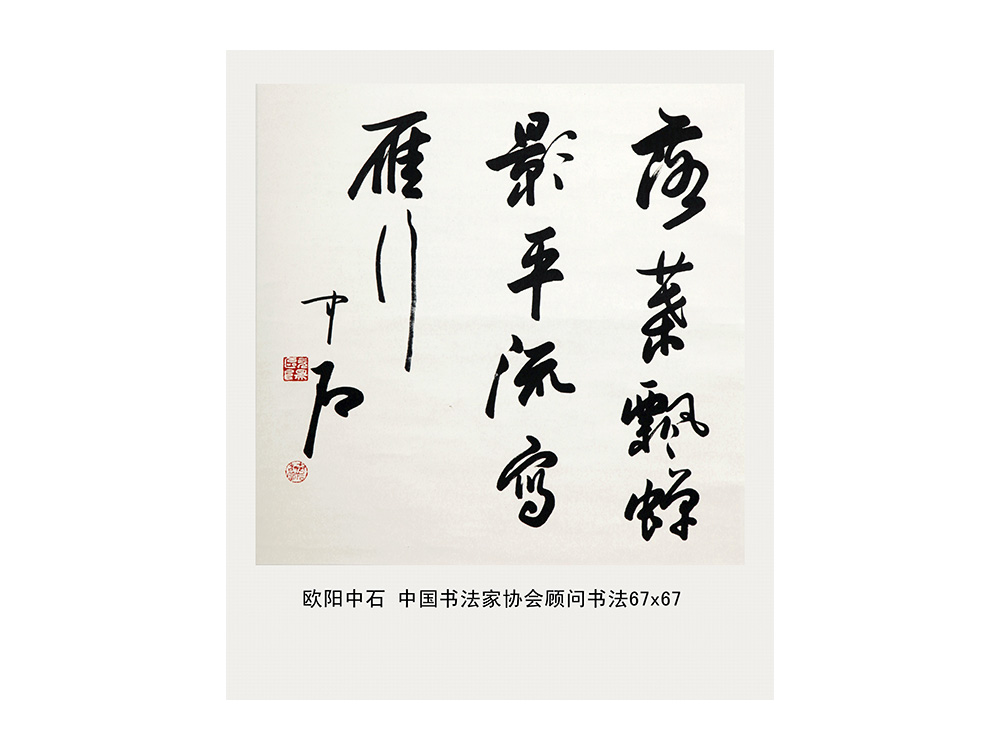 落葉飄蟬
影平流寫
雁行
中石
欧阳中石 中国书法家协会顾问书法67x67